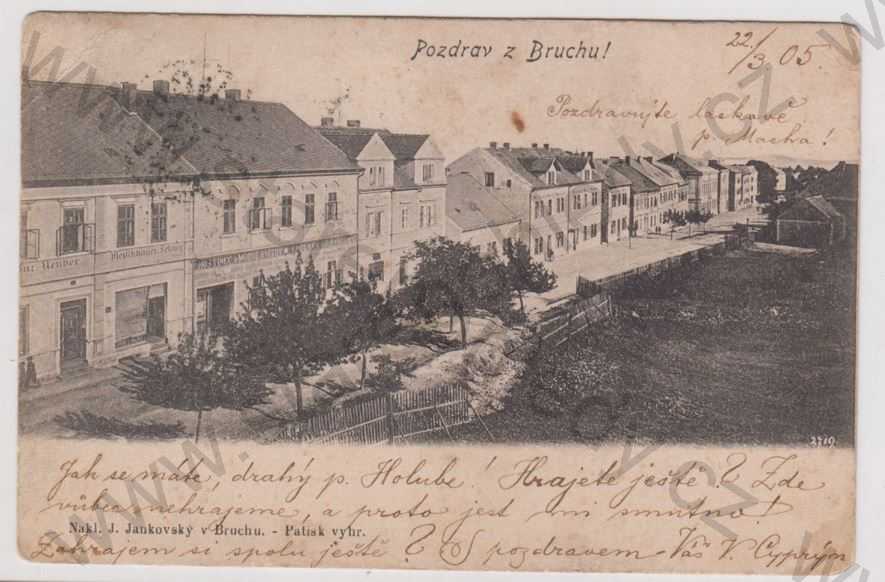 Pozdrav z Bruchu!
22/3 05.
Pozdravujte laskavě
p. Macha!
2719.
Jak se máte, drahý p. Holube! Hrajete ještě? Zde
vůbec nehrájeme, a proto jest mi smutno!
Nakl. J. Jankovský v Bruchu. - Patisk vyhr.
Zahrajem si spolu ještě? S pozdravem Váš V. Cyprýn